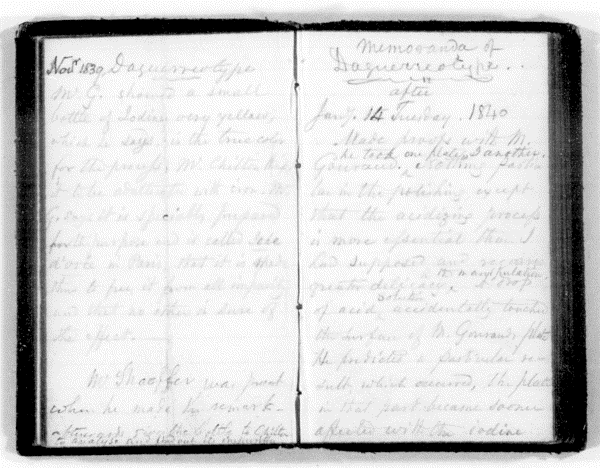 Novr 1839. Daguerreotype
Mr G. showed a small
bottle of Iodine very yellow,
which he says is the true color
for the process, Mr Chilton has
it to be adulterated with iron. Mr
G. says it is specially prepared
for the purpose and is called
in Paris, that it is made
thus to free it from all impurity
and that no other is sure of
the effect.
Mr Shaeffer was present
when he made this remark.
Memoranda of
Daguerreotype.
after
Jany. 14 Tuesday. 1840
Made proofs with M.
he took one plate I another.
Gouraud. Nothing
in the polishing except
that the acidizing process
is more essential than I
had supposed and requires
greater delicacy in manipulation. A drop
solution
of acid accidentally touched
the surface of M. Gouraud's plate
He predicted a particular re-
sult, which occurred, the plate
in that part became sooner
affected with the iodine